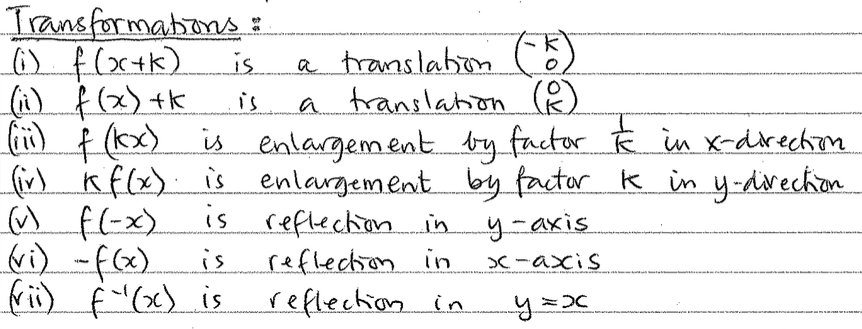 Transformations :
(i) f(x+k) is a translation (-k 0)
(ii) f(x)+k is a translation (0 k)
(iii) f(kx) is enlargement by factor 1/k in x-direction
(iv) k f(x) is enlargement by factor k in y-direction
(v) f(-x) is reflection in y-axis
(vi) -f(x) is reflection in x-axis
(vii) f⁻¹(x) is reflection in y=x